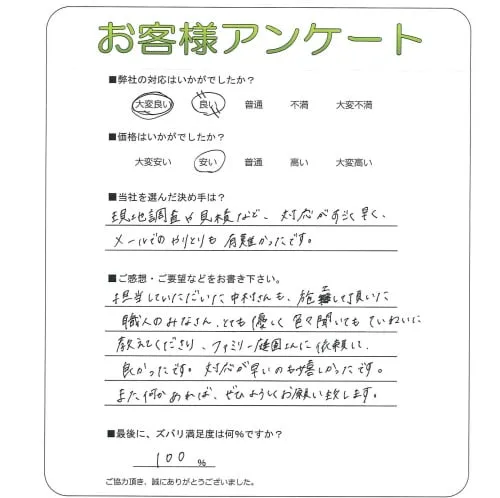 お客様アンケート
■弊社の対応はいかがでしたか?
大変良い 良い 普通 不満 大変不満
■価格はいかがでしたか?
大変安い 安い 普通 高い 大変高い
■当社を選んだ決め手は?
現地調査や見積など、対応がすごく早く、
メールでのやりとりも有難かったです。
■ご感想・ご要望などをお書き下さい。
担当していただいた中村さんも、施工して頂いた
職人のみなさん、とても優しく色々聞いてもていねいに
教えてくださり、ファミリー庭園さんに依頼して、
良かったです。対応が早いのも嬉しかったです。
また何かあれば、ぜひよろしくお願い致します。
■最後に、ズバリ満足度は何%ですか?
100 %
ご協力頂き、誠にありがとうございました。